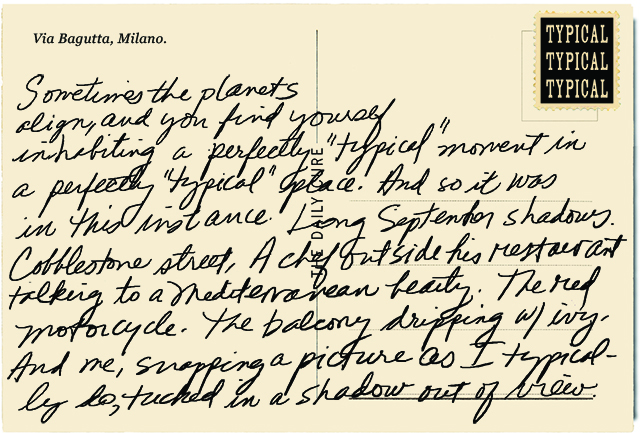 Via Bagutta, Milano.
TYPICAL
TYPICAL
TYPICAL
Sometimes the planets
align, and you find yourself
inhabiting a perfectly "typical" moment in
a perfectly "typical" place. And so it was
in this instance. Long September shadows.
Cobblestone street, A chef outside his restaurant
talking to a Mediterranean beauty. The red
motorcycle. The balcony dripping w/ ivy.
And me, snapping a picture as I typical-
ly do, tucked in a shadow out of view.
THE DAILY WIRE